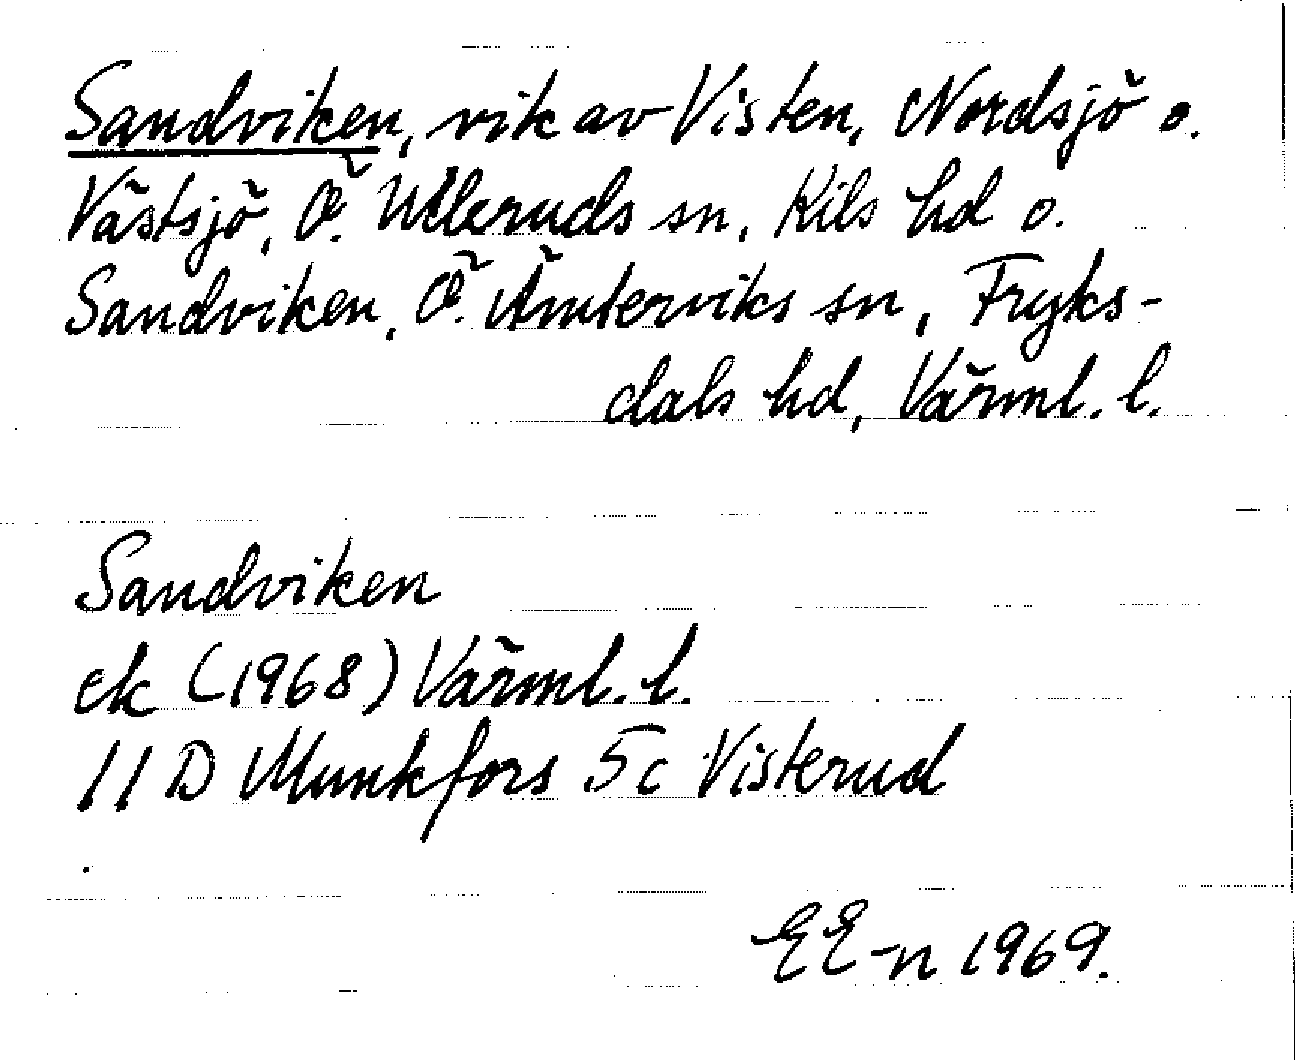 Sandviken, vik av Visten, Nordsjö o.
Västsjö, Ö. Ulleruds sn, Kils hd o.
Sandviken, Ö. Ämterviks sn, Fryks-
dals hd, Värml. l.
Sandviken
ek (1968) Värml. l.
11 D Munkfors 5c Visterud
EE-n 1969.